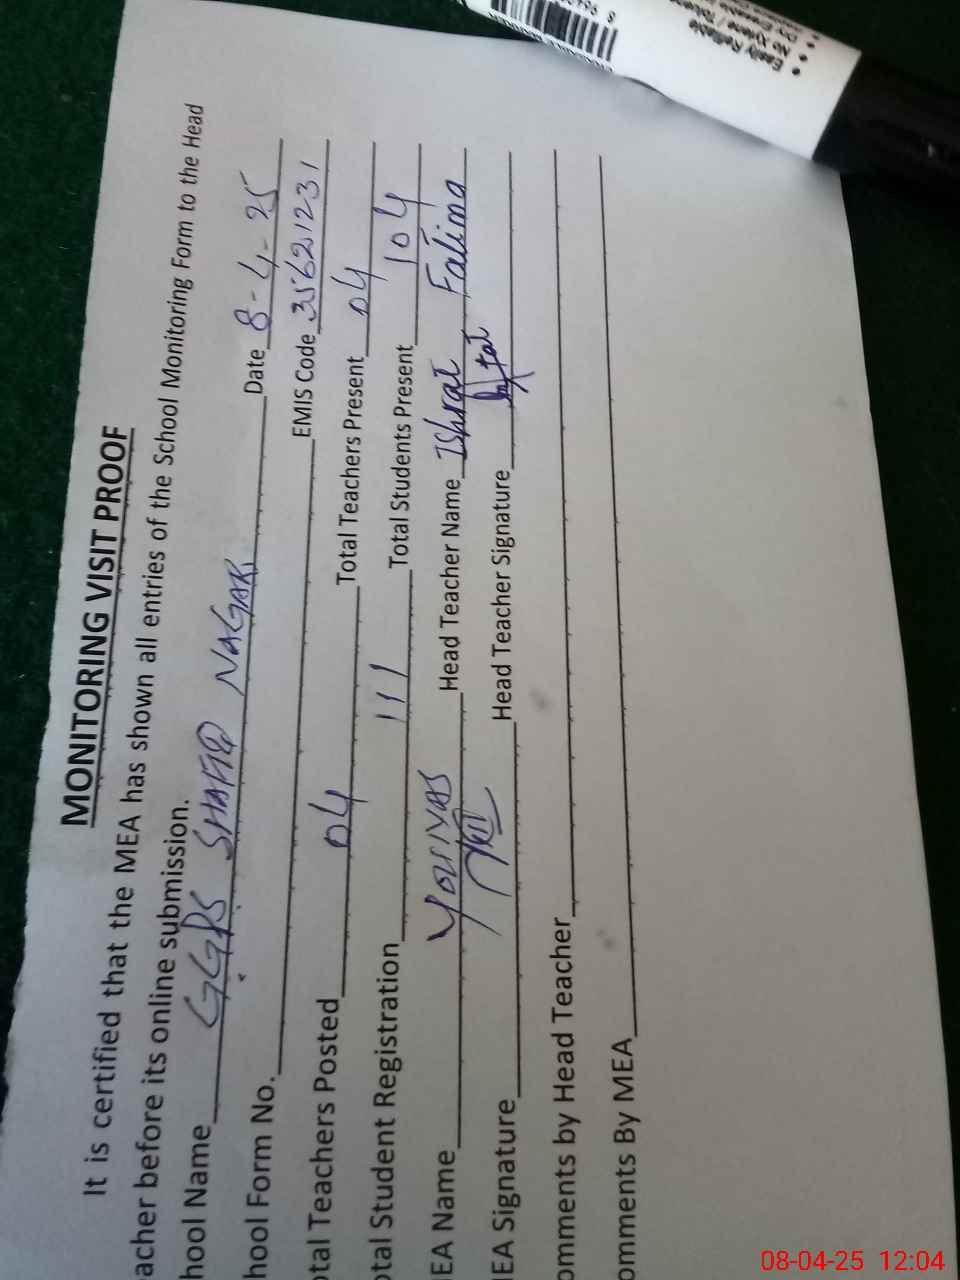 MONITORING VISIT PROOF
It is certified that the MEA has shown all entries of the School Monitoring Form to the Head
acher before its online submission.
hool Name GGPS SHAFIQ NAGAR Date 8-4-25
hool Form No. EMIS Code 35621231
otal Teachers Posted 04 Total Teachers Present 04
otal Student Registration 111 Total Students Present 104
IEA Name YOUNAS Head Teacher Name Ishrat Fatima
IEA Signature Head Teacher Signature
omments by Head Teacher
omments By MEA
Easily Refillable
No Xylene /
08-04-25 12:04